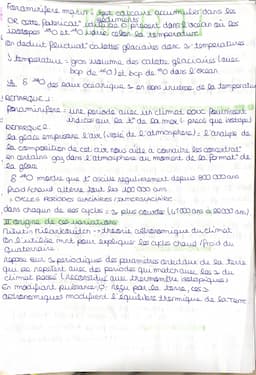 Foraminifère marin : test calcaire accumulés dans les sédiments
or cette fabricat° calcaire à présent dans l'océan où les
isotopes 18O et 16O indice selon la température
on déduit fluctuat° calottes glaciaires donc > températures
> température = gros volume des calottes glaciaires (avec
bcp de 16O) et bcp de 18O dans l'océan
18O des eaux océanique > en sont indice de la température
REMARQUE 1
Foraminifère : une période avec un climat
indices que la
REMARQUE 2
la glace emprisonne l'air (voisé de l'atmosphère) : l'analyse de
la composition de cet air nous aide à connaître les
en certains gaz dans l'atmosphère au moment de la format° de
la glace
δ 18O montre que T° oscille régulièrement depuis 800 000 ans
froid/chaud alterné tout les 100 000 ans
: CYCLES PÉRIODES GLACIAIRES/INTERGLACIAIRE
dans chacun de ces cycles = > plus courtes (41000 ans et
II origine de ces variations
Milutin Milankovitch --> théorie astronomique du climat
On l'utilise mnt pour expliquer les cycles chaud/froid du
quaternaire
repose sur > périodiques des paramètres orbitaux de la terre
qui se répètent avec des périodes qui matchent les > du
climat passé (reconstitué avec thermomètre isotopiques)
En modifiant puissance reçu par la terre, ces >
astronomiques modifient l'équilibre thermique de la Terre